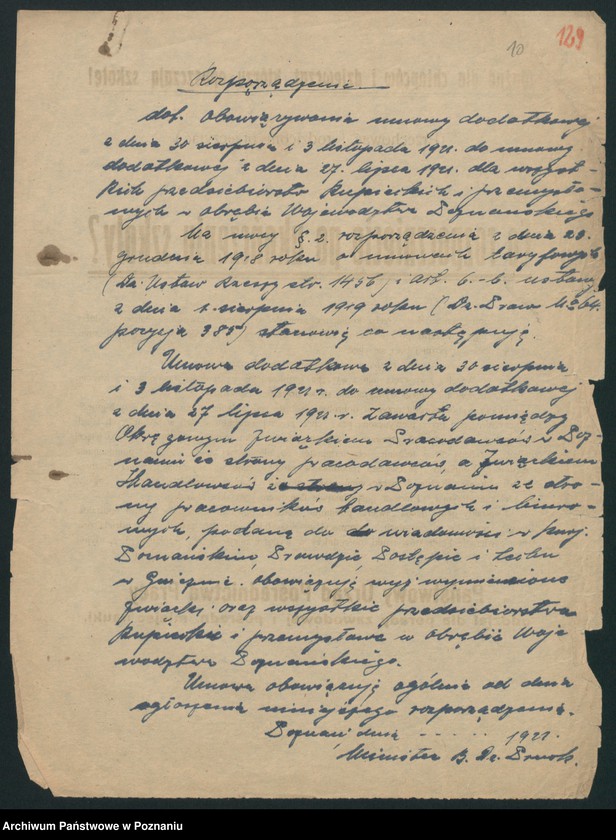 10 129
Rozporządzenie
dot. obowiązywania umowy dodatkowej
z dnia 30 sierpnia i 3 listopada 1921. do umowy
dodatkowej z dnia 27. lipca 1921. dla wszyst-
kich przedsiębiorstw kupieckich i przemysło-
wych w obrębie Województwa Poznańskiego
Na mocy § 2. rozporządzenia z dnia 23
grudnia 1918 roku o umowach taryfowych
(Dz. Ustaw Rzeszy str. 1456) i art. 6. ustawy
z dnia 1. sierpnia 1919 roku (Dz. Praw No 64.
pozycja 385) stanowię co następuję.
Umowa dodatkowa z dnia 30 sierpnia
i 3 listopada 1921 r. do umowy dodatkowej
z dnia 27 lipca 1921 r. zawarta pomiędzy
Okręgowym Związkiem Pracodawców w Poz-
naniu ze strony pracodawców, a Związkiem
Handlowców w Poznaniu ze stro-
ny pracowników handlowych i biuro-
wych, podaną do wiadomości w Kurj.
Poznańskim, Prawdzie, Postępie i Lechu
w Gnieźnie. obowiązują wyż wymienione
związki, oraz wszystkie przedsiębiorstwa
kupieckie i przemysłowe w obrębie Woje
wództwa Poznańskiego.
Umowa obowiązują ogólnie od dnia
ogłoszenia niniejszego rozporządzenia.
Poznań dnia - - - - - 1921.
Minister B. Dz. Prusk.
Archiwum Państwowe w Poznaniu